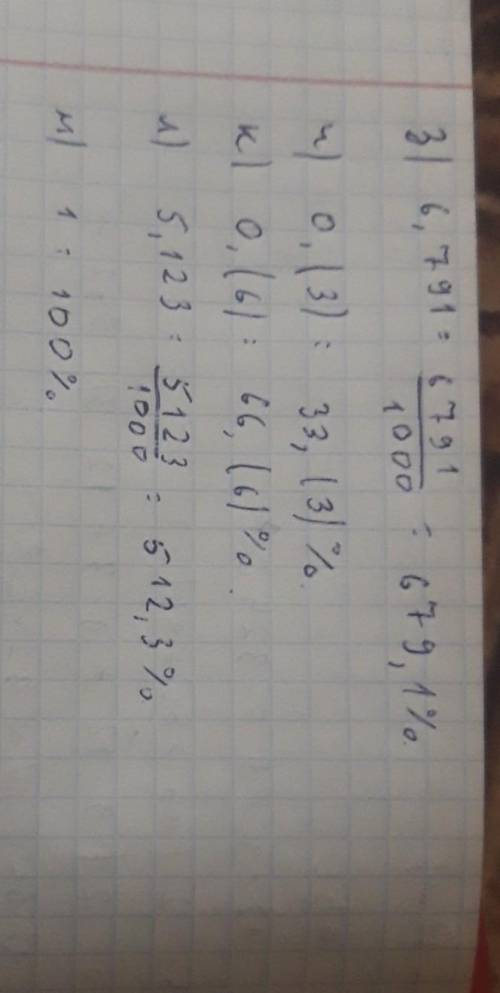 з) 6,791 = 6791/1000 = 679,1%.
и) 0,(3) = 33,(3)%.
к) 0,(6) = 66,(6)%.
л) 5,123 = 5123/1000 = 512,3%.
м) 1 = 100%.